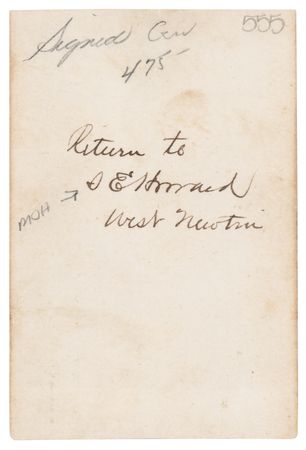 555
Signed Gen
475
Return to
S E Howard
MOH →
West Newton